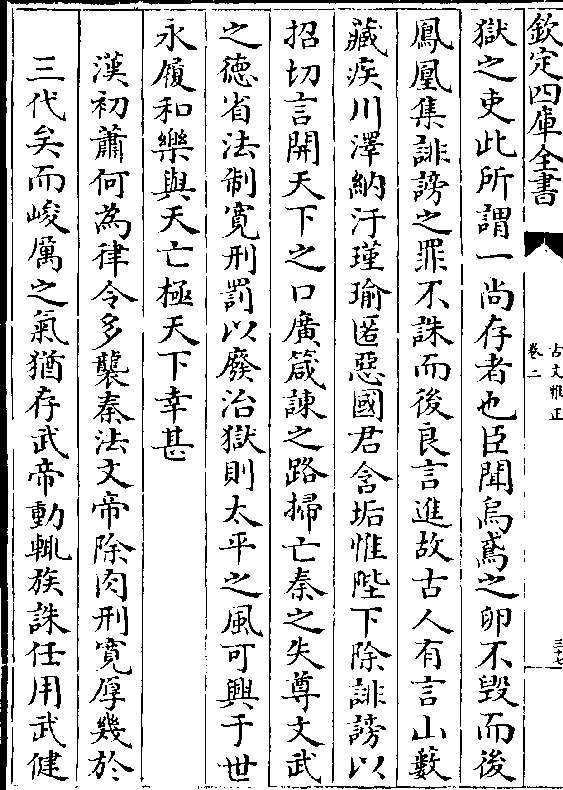 欽定四庫全書
古文雅正
卷二
三十七
獄之吏此所謂一尚存者也臣聞烏鳶之卵不毀而後
鳳凰集誹謗之罪不誅而後良言進故古人有言山藪
藏疾川澤納汙瑾瑜匿惡國君含垢惟陛下除誹謗以
招切言開天下之口廣箴諫之路掃亡秦之失尊文武
之德省法制寛刑罰以廢治獄則太平之風可興于世
永履和樂與天亡極天下幸甚
漢初蕭何為律令多襲秦法文帝除肉刑寛厚幾於
三代矣而峻厲之氣猶存武帝動輒族誅任用武健